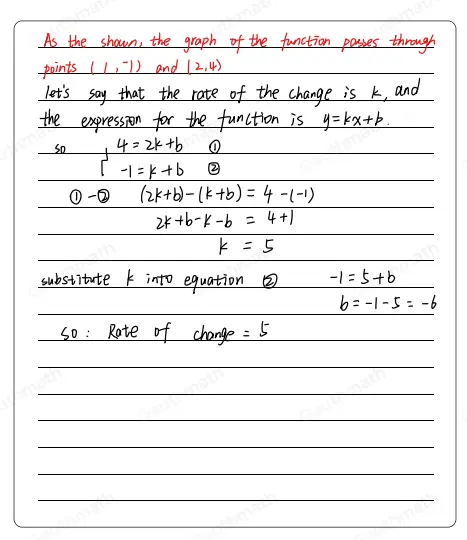 As the shown, the graph of the function passes through
points (1,-1) and (2,4)
let's say that the rate of the change is k, and
the expression for the function is y=kx+b.
so { 4=2k+b ①
-1=k+b ②
①-② (2k+b)-(k+b)= 4-(-1)
2k+b-k-b = 4+1
k = 5
substitute k into equation ② -1=5+b
b=-1-5=-6
so: Rate of change = 5